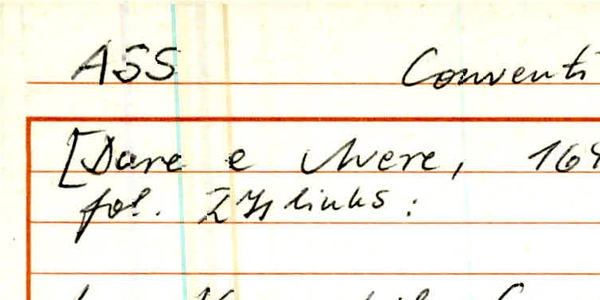 ASS Conventi
[Dare e Avere, 164
fol. links: